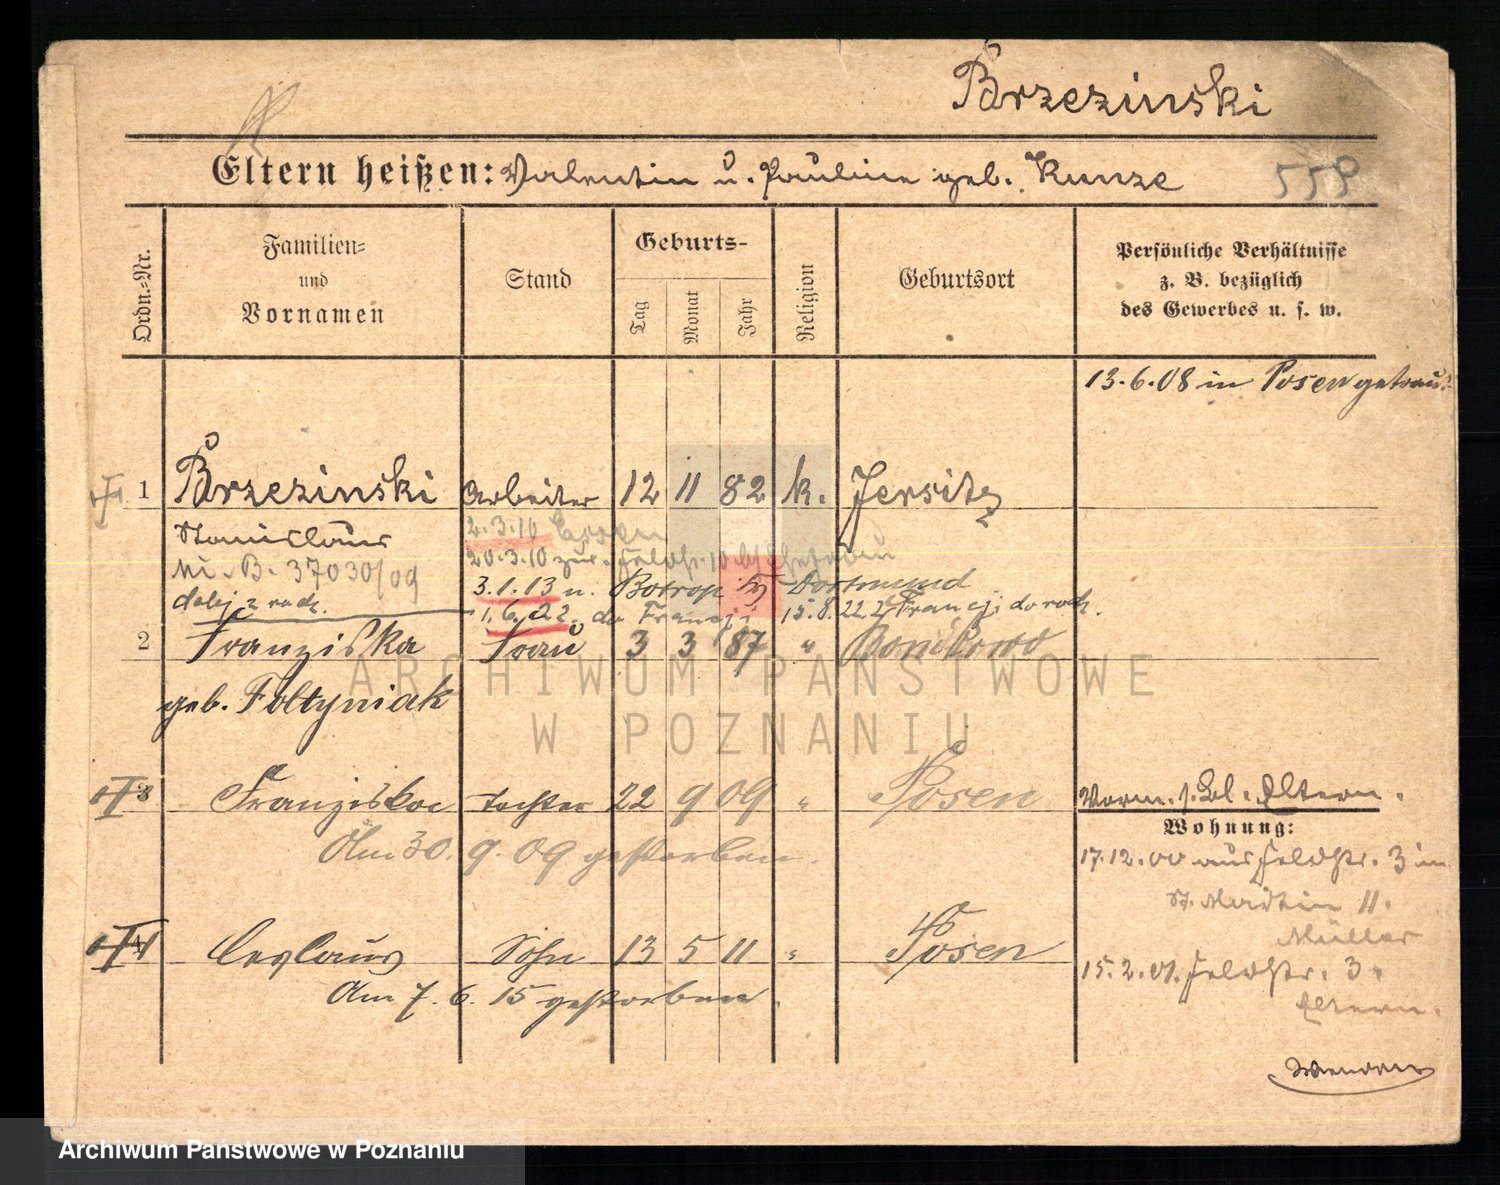 Brzezinski
Eltern heißen: Valentin u. Pauline geb. Kunze 558
Ordn.-Nr.
Familien- und Vornamen
Stand
Geburts-
Tag Monat Jahr
Religion
Geburtsort
Persönliche Verhältnisse
z. B. bezüglich
des Gewerbes u. s. w.
13.6.08 in Posen getraut
1 Brzezinski Arbeiter 12 11 82 k. Jersitz
Stanislaus 2.3.10
Ni. B. 37030/09 20.3.10 zur. Feldstr. 10
3.1.13 n. Botrop Dortmund
dalej z rodz. 1.6.22. do Francji 15.8.22 z Francji do rodz.
2 Franziska Frau 3 3 87 " Bonikowo
geb. Foltyniak
3 Franziska Tochter 22 9 09 " Posen
Am 30. 9. 09 gestorben.
4 Ceslaus Sohn 13 5 11 " Posen
Am 7. 6. 15 gestorben.
Vorm. s. Bl. Eltern.
Wohnung:
17.12.00 aus Feldstr. 3 in
St. Martin 11.
Müller
15.2.01. Feldstr. 3.
Eltern.
ARCHIWUM PAŃSTWOWE
W POZNANIU
Archiwum Państwowe w Poznaniu